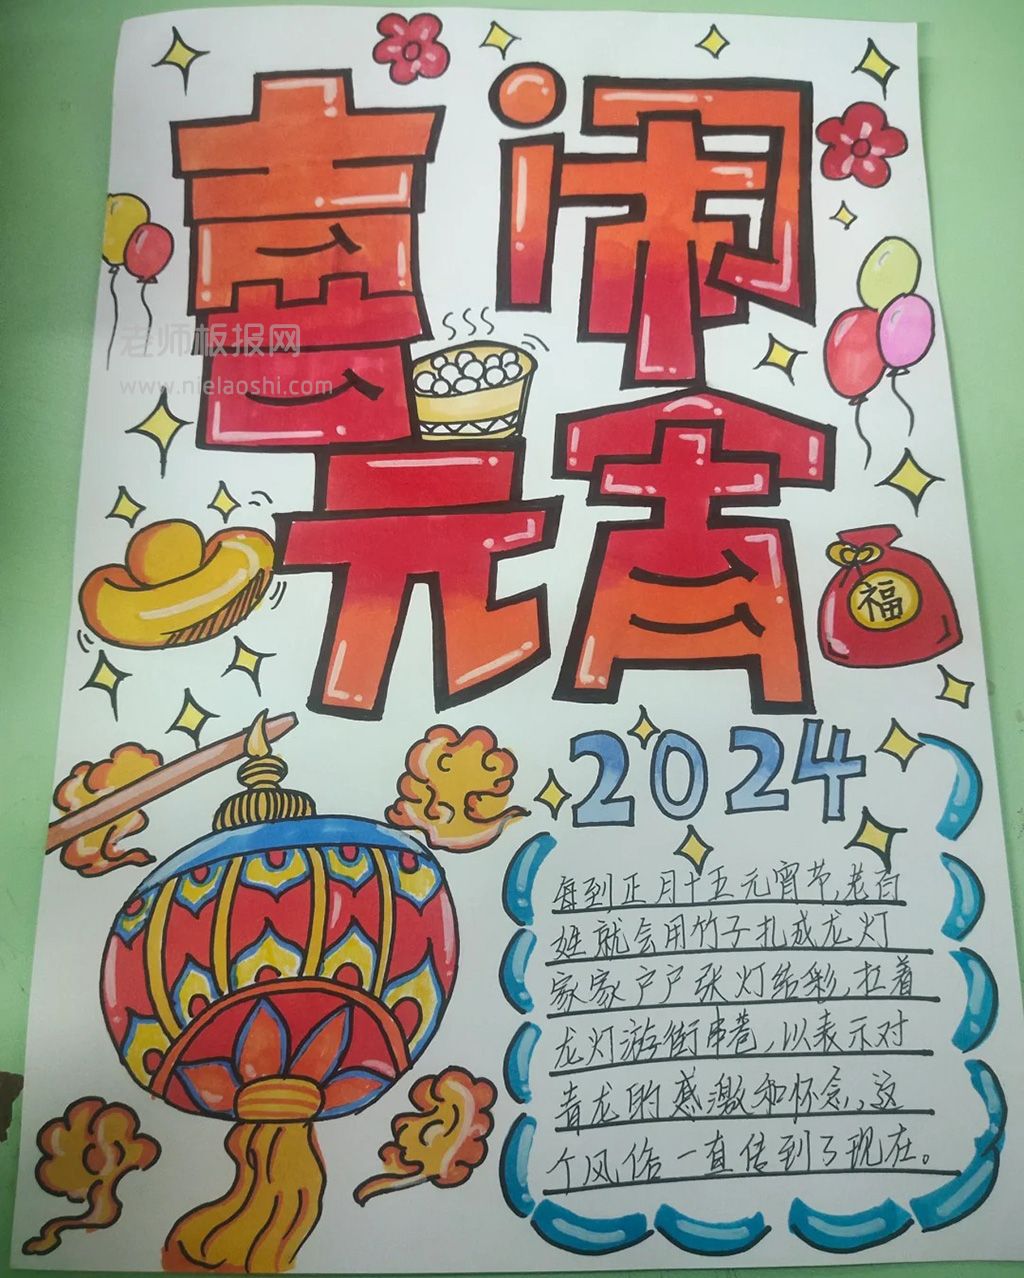 喜闹
元宵
老师板报网
www.nielaoshi.com
福
2024
每到正月十五元宵节,老百
姓就会用竹子扎成龙灯
家家户户张灯结彩,扛着
龙灯游街串巷,以表示对
青龙的感激和怀念,这
个风俗一直传到了现在。